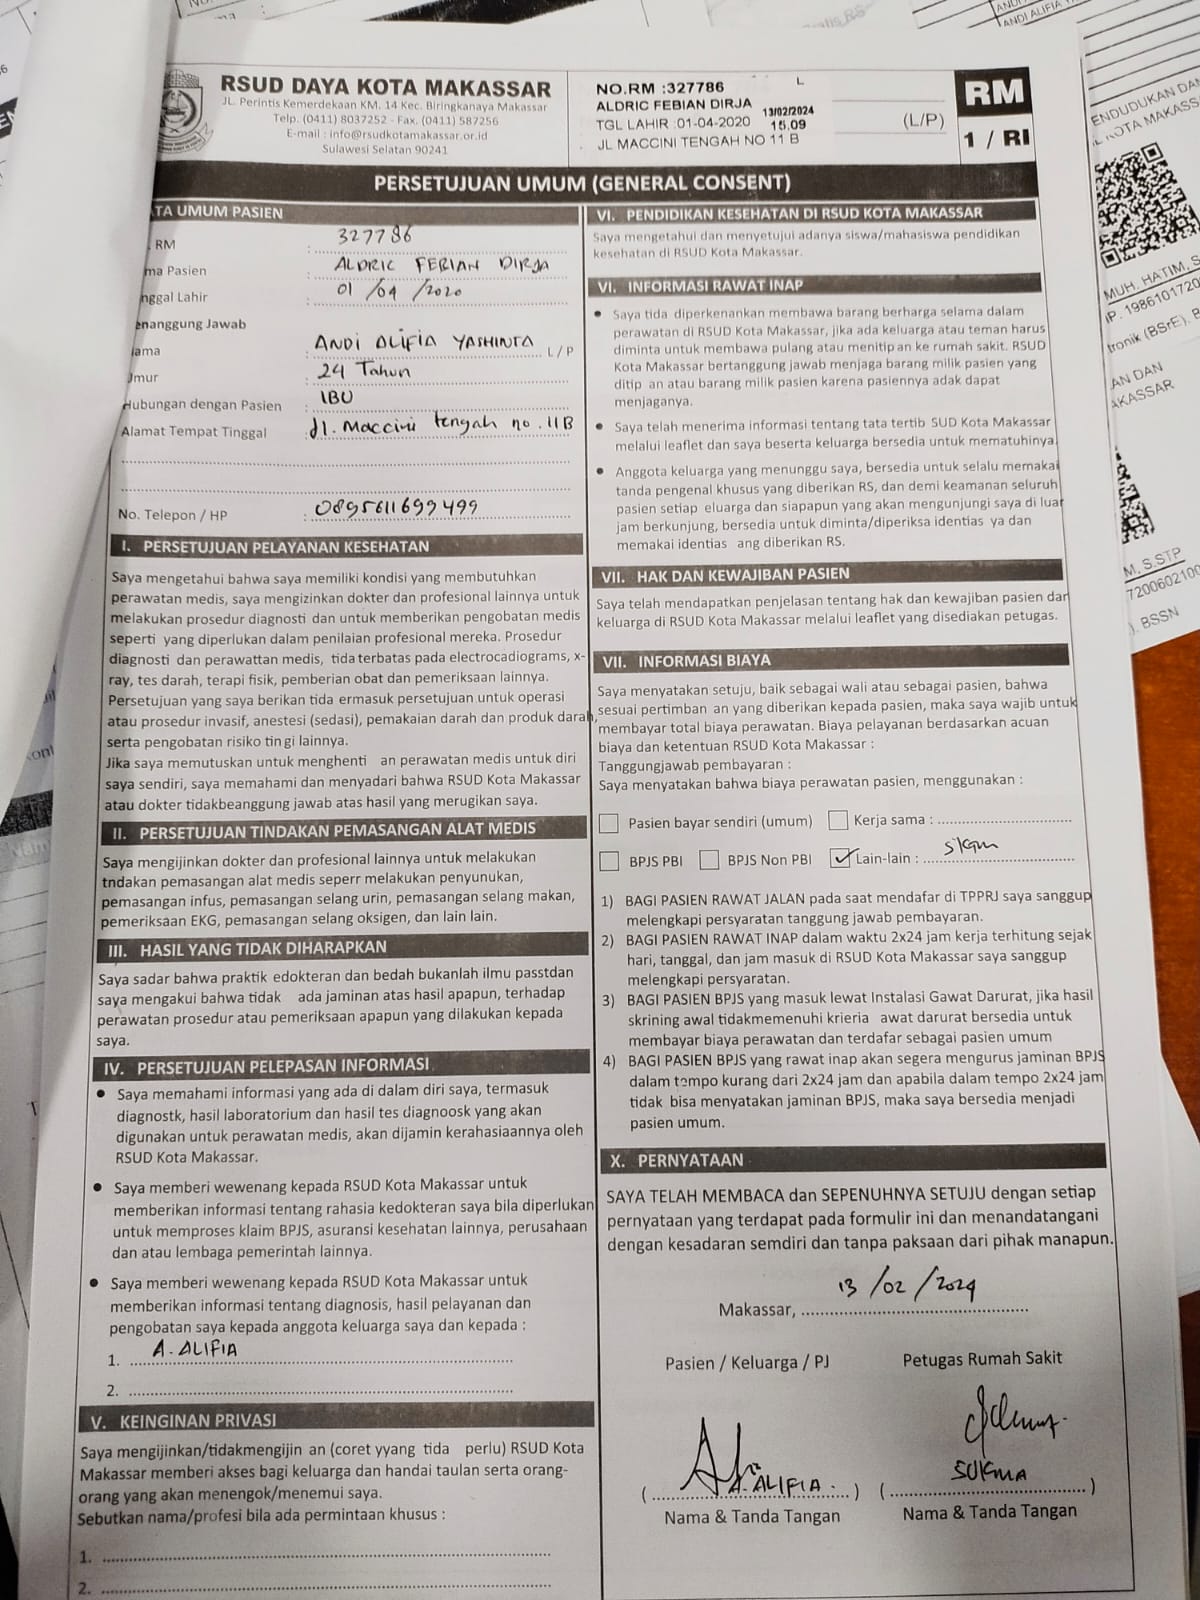 RSUD DAYA KOTA MAKASSAR
JL. Perintis Kemerdekaan KM. 14 Kec. Biringkanaya Makassar
Telp. (0411) 8037252 - Fax. (0411) 587256
E-mail : info@rsudkotamakassar.or.id
Sulawesi Selatan 90241
NO.RM :327786 L
ALDRIC FEBIAN DIRJA 13/02/2024
TGL LAHIR :01-04-2020 15.09
JL MACCINI TENGAH NO 11 B
(L/P)
RM
1 / RI
PERSETUJUAN UMUM (GENERAL CONSENT)
TA UMUM PASIEN
. RM : 327786
ma Pasien : ALDRIC FEBIAN DIRJA
nggal Lahir : 01/04/2020
enanggung Jawab
ama : ANDI ALIFIA YASHINTA L/P
Umur : 24 Tahun
Hubungan dengan Pasien : IBU
Alamat Tempat Tinggal : Jl. Maccini tengah no. 11B
No. Telepon / HP : 0895611699499
I. PERSETUJUAN PELAYANAN KESEHATAN
Saya mengetahui bahwa saya memiliki kondisi yang membutuhkan
perawatan medis, saya mengizinkan dokter dan profesional lainnya untuk
melakukan prosedur diagnosti dan untuk memberikan pengobatan medis
seperti yang diperlukan dalam penilaian profesional mereka. Prosedur
diagnosti dan perawattan medis, tida terbatas pada electrocadiograms, x-
ray, tes darah, terapi fisik, pemberian obat dan pemeriksaan lainnya.
Persetujuan yang saya berikan tida ermasuk persetujuan untuk operasi
atau prosedur invasif, anestesi (sedasi), pemakaian darah dan produk darah,
serta pengobatan risiko tin gi lainnya.
Jika saya memutuskan untuk menghenti an perawatan medis untuk diri
saya sendiri, saya memahami dan menyadari bahwa RSUD Kota Makassar
atau dokter tidakbeanggung jawab atas hasil yang merugikan saya.
II. PERSETUJUAN TINDAKAN PEMASANGAN ALAT MEDIS
Saya mengijinkan dokter dan profesional lainnya untuk melakukan
tndakan pemasangan alat medis seperr melakukan penyunukan,
pemasangan infus, pemasangan selang urin, pemasangan selang makan,
pemeriksaan EKG, pemasangan selang oksigen, dan lain lain.
III. HASIL YANG TIDAK DIHARAPKAN
Saya sadar bahwa praktik edokteran dan bedah bukanlah ilmu passtdan
saya mengakui bahwa tidak ada jaminan atas hasil apapun, terhadap
perawatan prosedur atau pemeriksaan apapun yang dilakukan kepada
saya.
IV. PERSETUJUAN PELEPASAN INFORMASI
• Saya memahami informasi yang ada di dalam diri saya, termasuk
diagnostk, hasil laboratorium dan hasil tes diagnoosk yang akan
digunakan untuk perawatan medis, akan dijamin kerahasiaannya oleh
RSUD Kota Makassar.
• Saya memberi wewenang kepada RSUD Kota Makassar untuk
memberikan informasi tentang rahasia kedokteran saya bila diperlukan
untuk memproses klaim BPJS, asuransi kesehatan lainnya, perusahaan
dan atau lembaga pemerintah lainnya.
• Saya memberi wewenang kepada RSUD Kota Makassar untuk
memberikan informasi tentang diagnosis, hasil pelayanan dan
pengobatan saya kepada anggota keluarga saya dan kepada :
1. A. ALIFIA
2.
V. KEINGINAN PRIVASI
Saya mengijinkan/tidakmengijin an (coret yyang tida perlu) RSUD Kota
Makassar memberi akses bagi keluarga dan handai taulan serta orang-
orang yang akan menengok/menemui saya.
Sebutkan nama/profesi bila ada permintaan khusus :
1.
2.
VI. PENDIDIKAN KESEHATAN DI RSUD KOTA MAKASSAR
Saya mengetahui dan menyetujui adanya siswa/mahasiswa pendidikan
kesehatan di RSUD Kota Makassar.
VI. INFORMASI RAWAT INAP
• Saya tida diperkenankan membawa barang berharga selama dalam
perawatan di RSUD Kota Makassar, jika ada keluarga atau teman harus
diminta untuk membawa pulang atau menitip an ke rumah sakit. RSUD
Kota Makassar bertanggung jawab menjaga barang milik pasien yang
ditip an atau barang milik pasien karena pasiennya adak dapat
menjaganya.
• Saya telah menerima informasi tentang tata tertib SUD Kota Makassar
melalui leaflet dan saya beserta keluarga bersedia untuk mematuhinya
• Anggota keluarga yang menunggu saya, bersedia untuk selalu memakai
tanda pengenal khusus yang diberikan RS, dan demi keamanan seluruh
pasien setiap eluarga dan siapapun yang akan mengunjungi saya di luar
jam berkunjung, bersedia untuk diminta/diperiksa identias ya dan
memakai identias ang diberikan RS.
VII. HAK DAN KEWAJIBAN PASIEN
Saya telah mendapatkan penjelasan tentang hak dan kewajiban pasien dar
keluarga di RSUD Kota Makassar melalui leaflet yang disediakan petugas.
VII. INFORMASI BIAYA
Saya menyatakan setuju, baik sebagai wali atau sebagai pasien, bahwa
sesuai pertimban an yang diberikan kepada pasien, maka saya wajib untuk
membayar total biaya perawatan. Biaya pelayanan berdasarkan acuan
biaya dan ketentuan RSUD Kota Makassar :
Tanggungjawab pembayaran :
Saya menyatakan bahwa biaya perawatan pasien, menggunakan :
Pasien bayar sendiri (umum) Kerja sama :
BPJS PBI BPJS Non PBI Lain-lain : SKTM
1) BAGI PASIEN RAWAT JALAN pada saat mendafar di TPPRJ saya sanggup
melengkapi persyaratan tanggung jawab pembayaran.
2) BAGI PASIEN RAWAT INAP dalam waktu 2x24 jam kerja terhitung sejak
hari, tanggal, dan jam masuk di RSUD Kota Makassar saya sanggup
melengkapi persyaratan.
3) BAGI PASIEN BPJS yang masuk lewat Instalasi Gawat Darurat, jika hasil
skrining awal tidakmemenuhi krieria awat darurat bersedia untuk
membayar biaya perawatan dan terdafar sebagai pasien umum
4) BAGI PASIEN BPJS yang rawat inap akan segera mengurus jaminan BPJS
dalam tempo kurang dari 2x24 jam dan apabila dalam tempo 2x24 jam
tidak bisa menyatakan jaminan BPJS, maka saya bersedia menjadi
pasien umum.
X. PERNYATAAN
SAYA TELAH MEMBACA dan SEPENUHNYA SETUJU dengan setiap
pernyataan yang terdapat pada formulir ini dan menandatangani
dengan kesadaran semdiri dan tanpa paksaan dari pihak manapun.
Makassar, 13/02/2024
Pasien / Keluarga / PJ Petugas Rumah Sakit
(A. ALIFIA.) (SUKMA)
Nama & Tanda Tangan Nama & Tanda Tangan
ANDI ALIFIA
ENDUDUKAN DAN
KOTA MAKASS
MUH. HATIM, S
IP. 1986101720
tronik (BSrE), B
AN DAN
AKASSAR
M, S.STP
7200602100
BSSN